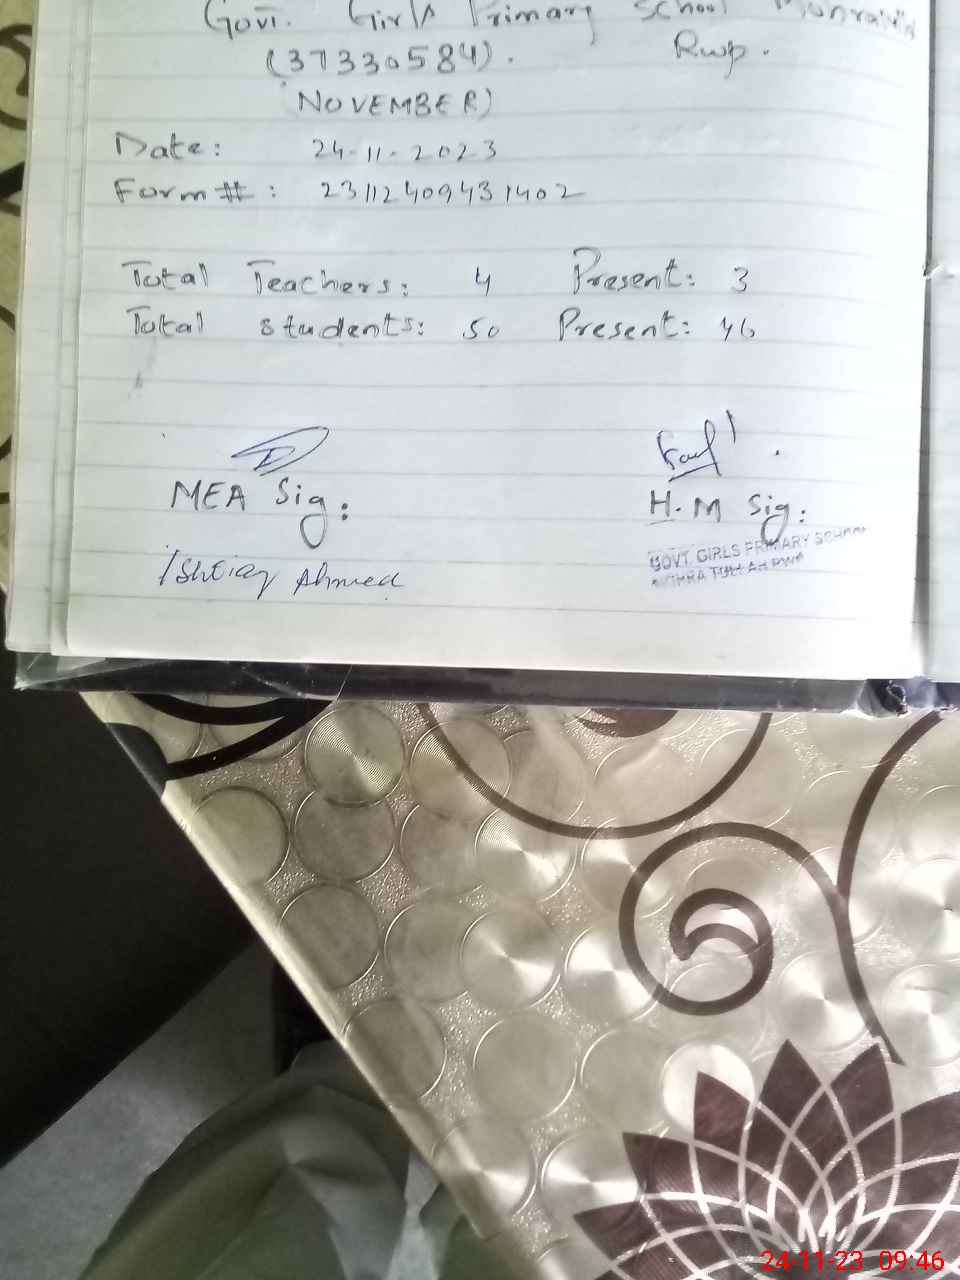 Govt. Girls Primary School
(37330584). Rwp.
(NOVEMBER)
Date: 24-11-2023
Form #: 23112409431402
Total Teachers: 4 Present: 3
Total students: 50 Present: 46
MEA Sig:
H.M Sig:
Ahmed
GOVT. GIRLS PRIMARY SCHOOL
24-11-23 09:46